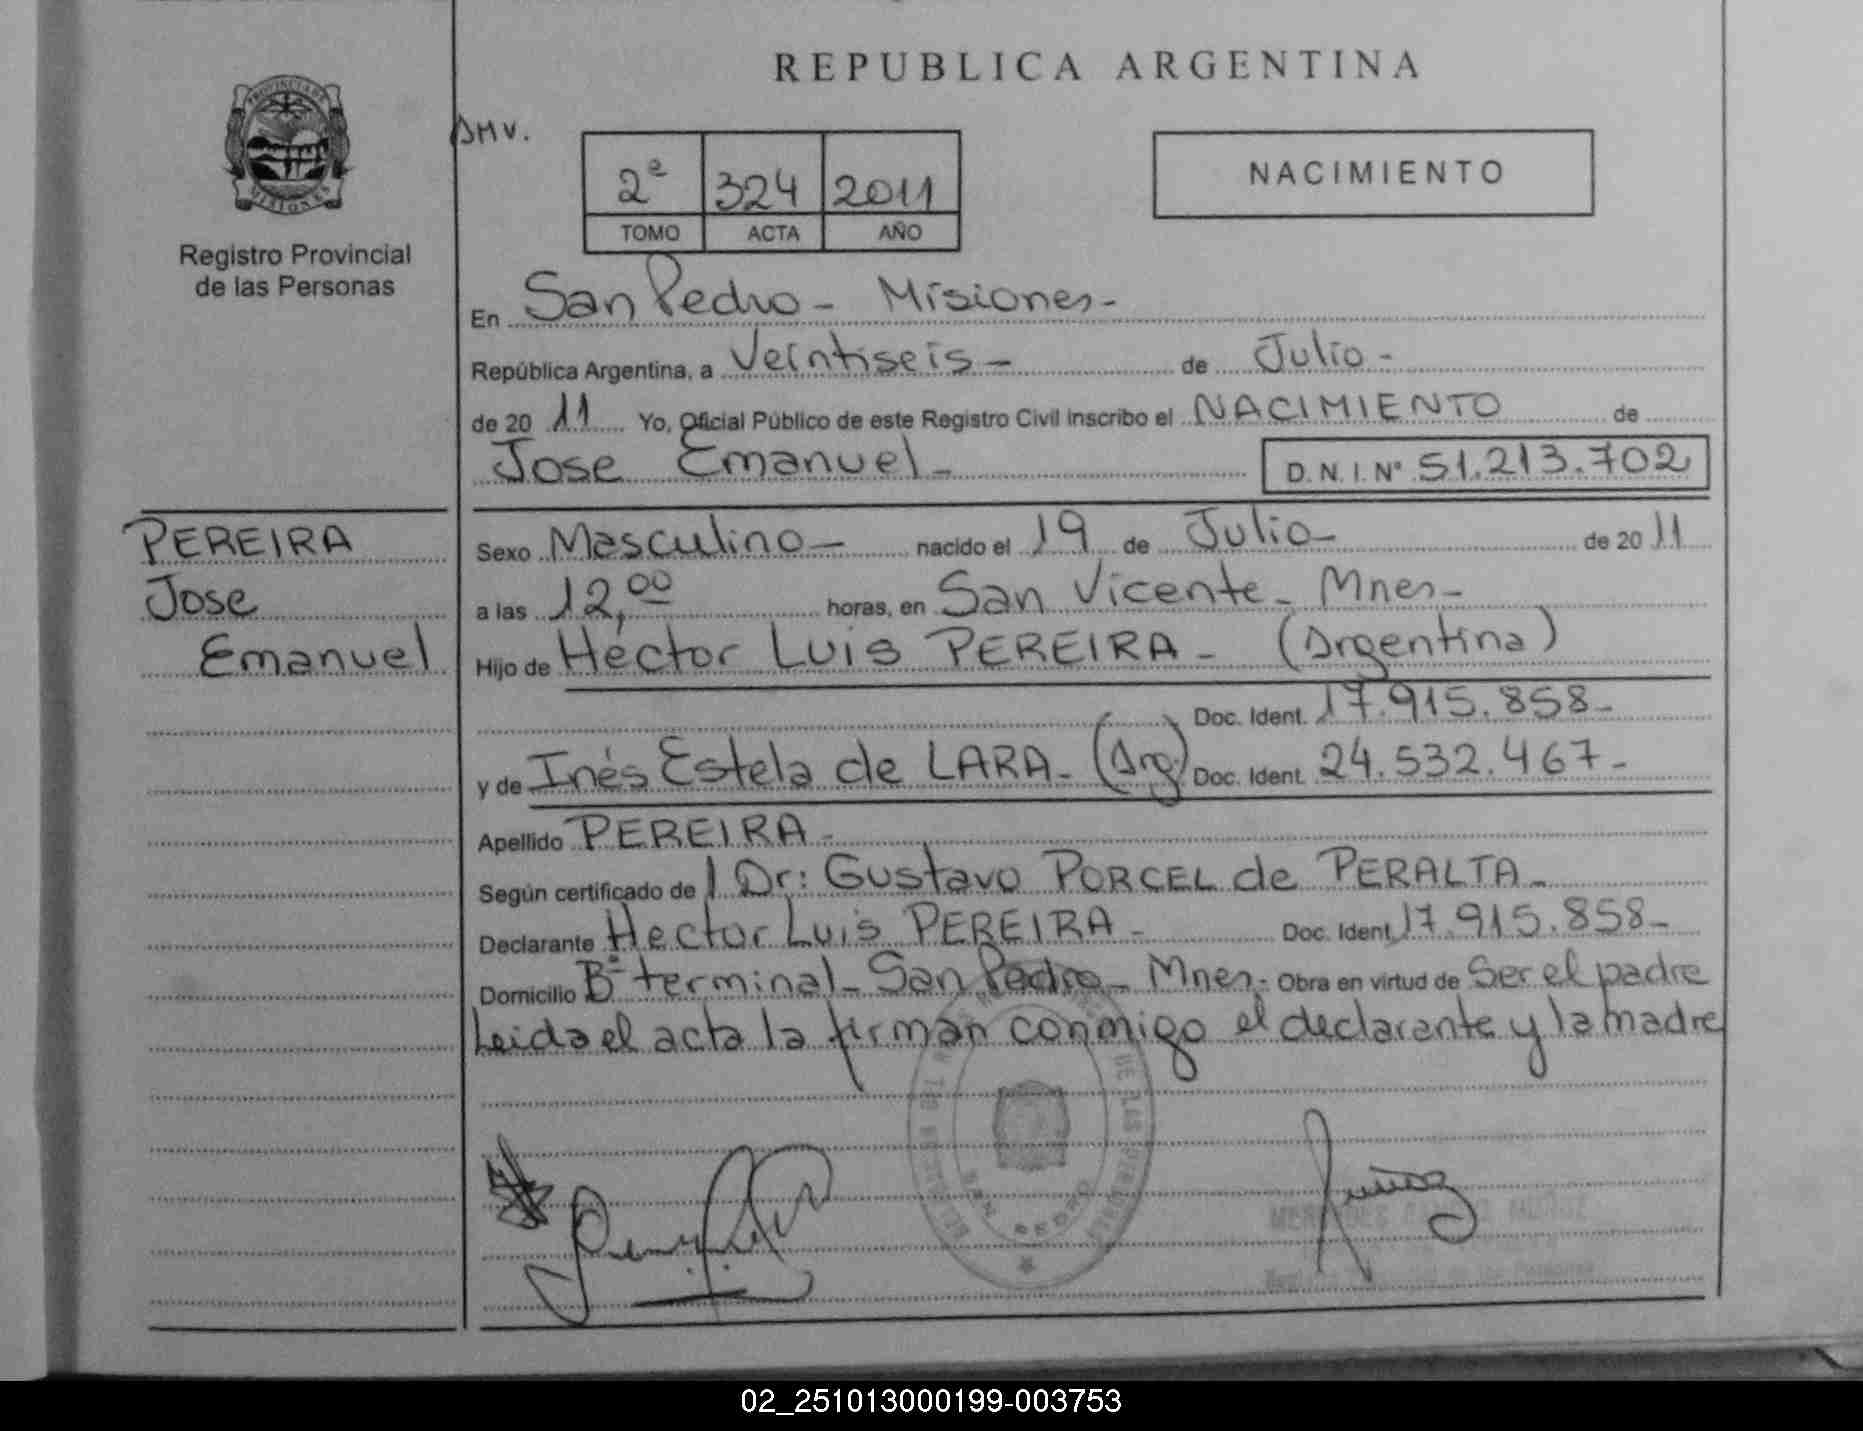 REPUBLICA ARGENTINA
PROVINCIA DE
MISIONES
Registro Provincial
de las Personas
DMV.
2ª 324 2011
TOMO ACTA AÑO
NACIMIENTO
En San Pedro - Misiones -
República Argentina, a Veintiseis - de Julio -
de 20 11 Yo, Oficial Público de este Registro Civil inscribo el NACIMIENTO de
Jose Emanuel - D.N.I. Nº 51.213.702
PEREIRA
Jose
Emanuel
Sexo Masculino - nacido el 19 de Julio - de 20 11
a las 12,00 horas, en San Vicente - Mnes -
Hijo de Héctor Luis PEREIRA - (Argentina)
Doc. Ident. 17.915.858 -
y de Inés Estela de LARA - (Arg) Doc. Ident. 24.532.467 -
Apellido PEREIRA -
Según certificado de Dr: Gustavo PORCEL de PERALTA -
Declarante Hector Luis PEREIRA - Doc. Ident. 17.915.858 -
Domicilio Bº terminal - San Pedro - Mnes - Obra en virtud de Ser el padre
Leida el acta la firman conmigo el declarante y la madre
DE LAS PERSONAS
SAN PEDRO
02_251013000199-003753